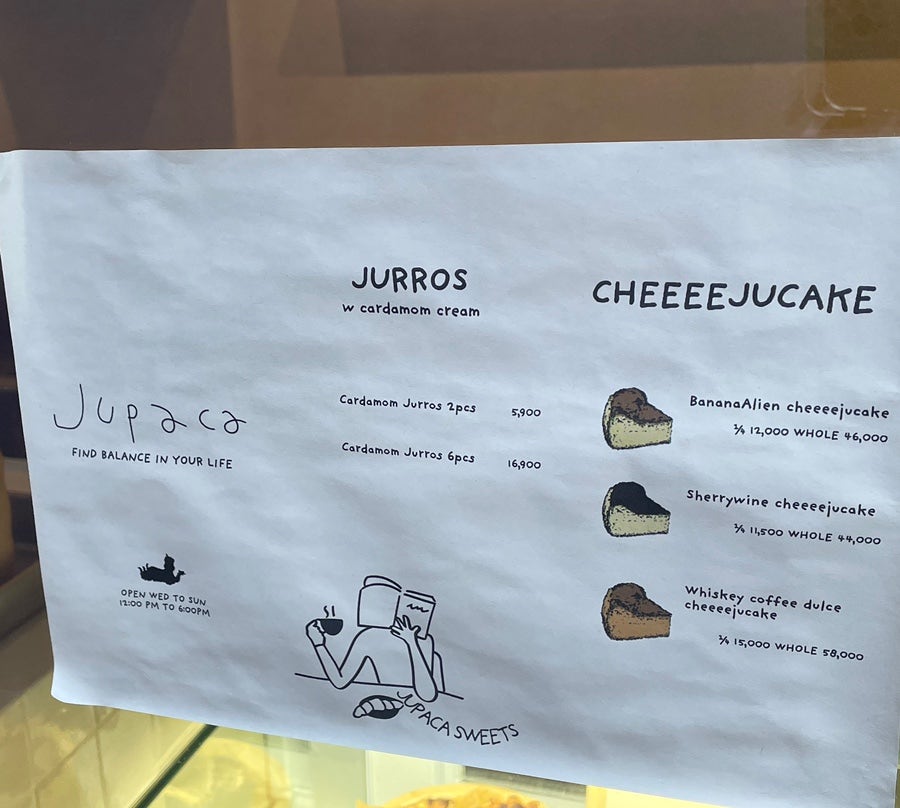 Jupaca
FIND BALANCE IN YOUR LIFE
OPEN WED TO SUN
12:00 PM TO 6:00PM
JURROS
w cardamom cream
Cardamom Jurros 2pcs 5,900
Cardamom Jurros 6pcs 16,900
JUPACA SWEETS
CHEEEEJUCAKE
BananaAlien cheeeejucake
¼ 12,000 WHOLE 46,000
Sherrywine cheeeejucake
¼ 11,500 WHOLE 44,000
Whiskey coffee dulce
cheeeejucake
¼ 15,000 WHOLE 58,000